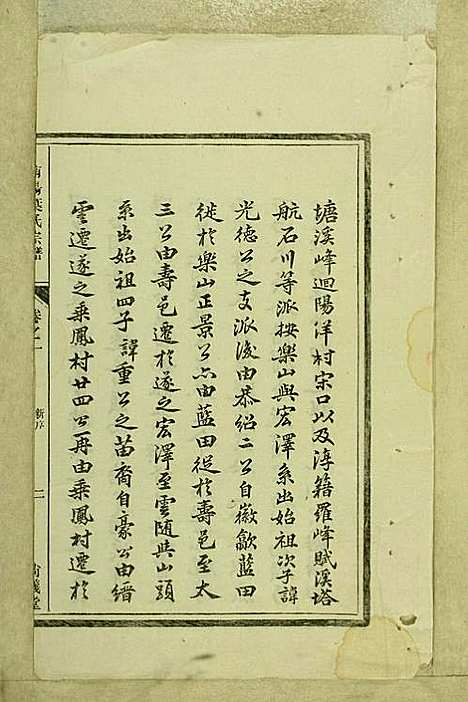 塘溪峰迴陽洋村宋口以及淳籍羅峰賦溪塔
航石川等派按樂山與宏澤系出始祖次子諱
光德公之支派後由恭紹二公自徽歙藍田
徙於樂山正景公亦由藍田從於壽邑至太
三公由壽邑遷於遂之宏澤至雲隨與山頭
系出始祖四子諱重公之苗裔自豪公由縉
雲遷遂之乘鳳村廿四公再由乘鳳村遷於
南陽葉氏宗譜
卷之一
新序
二